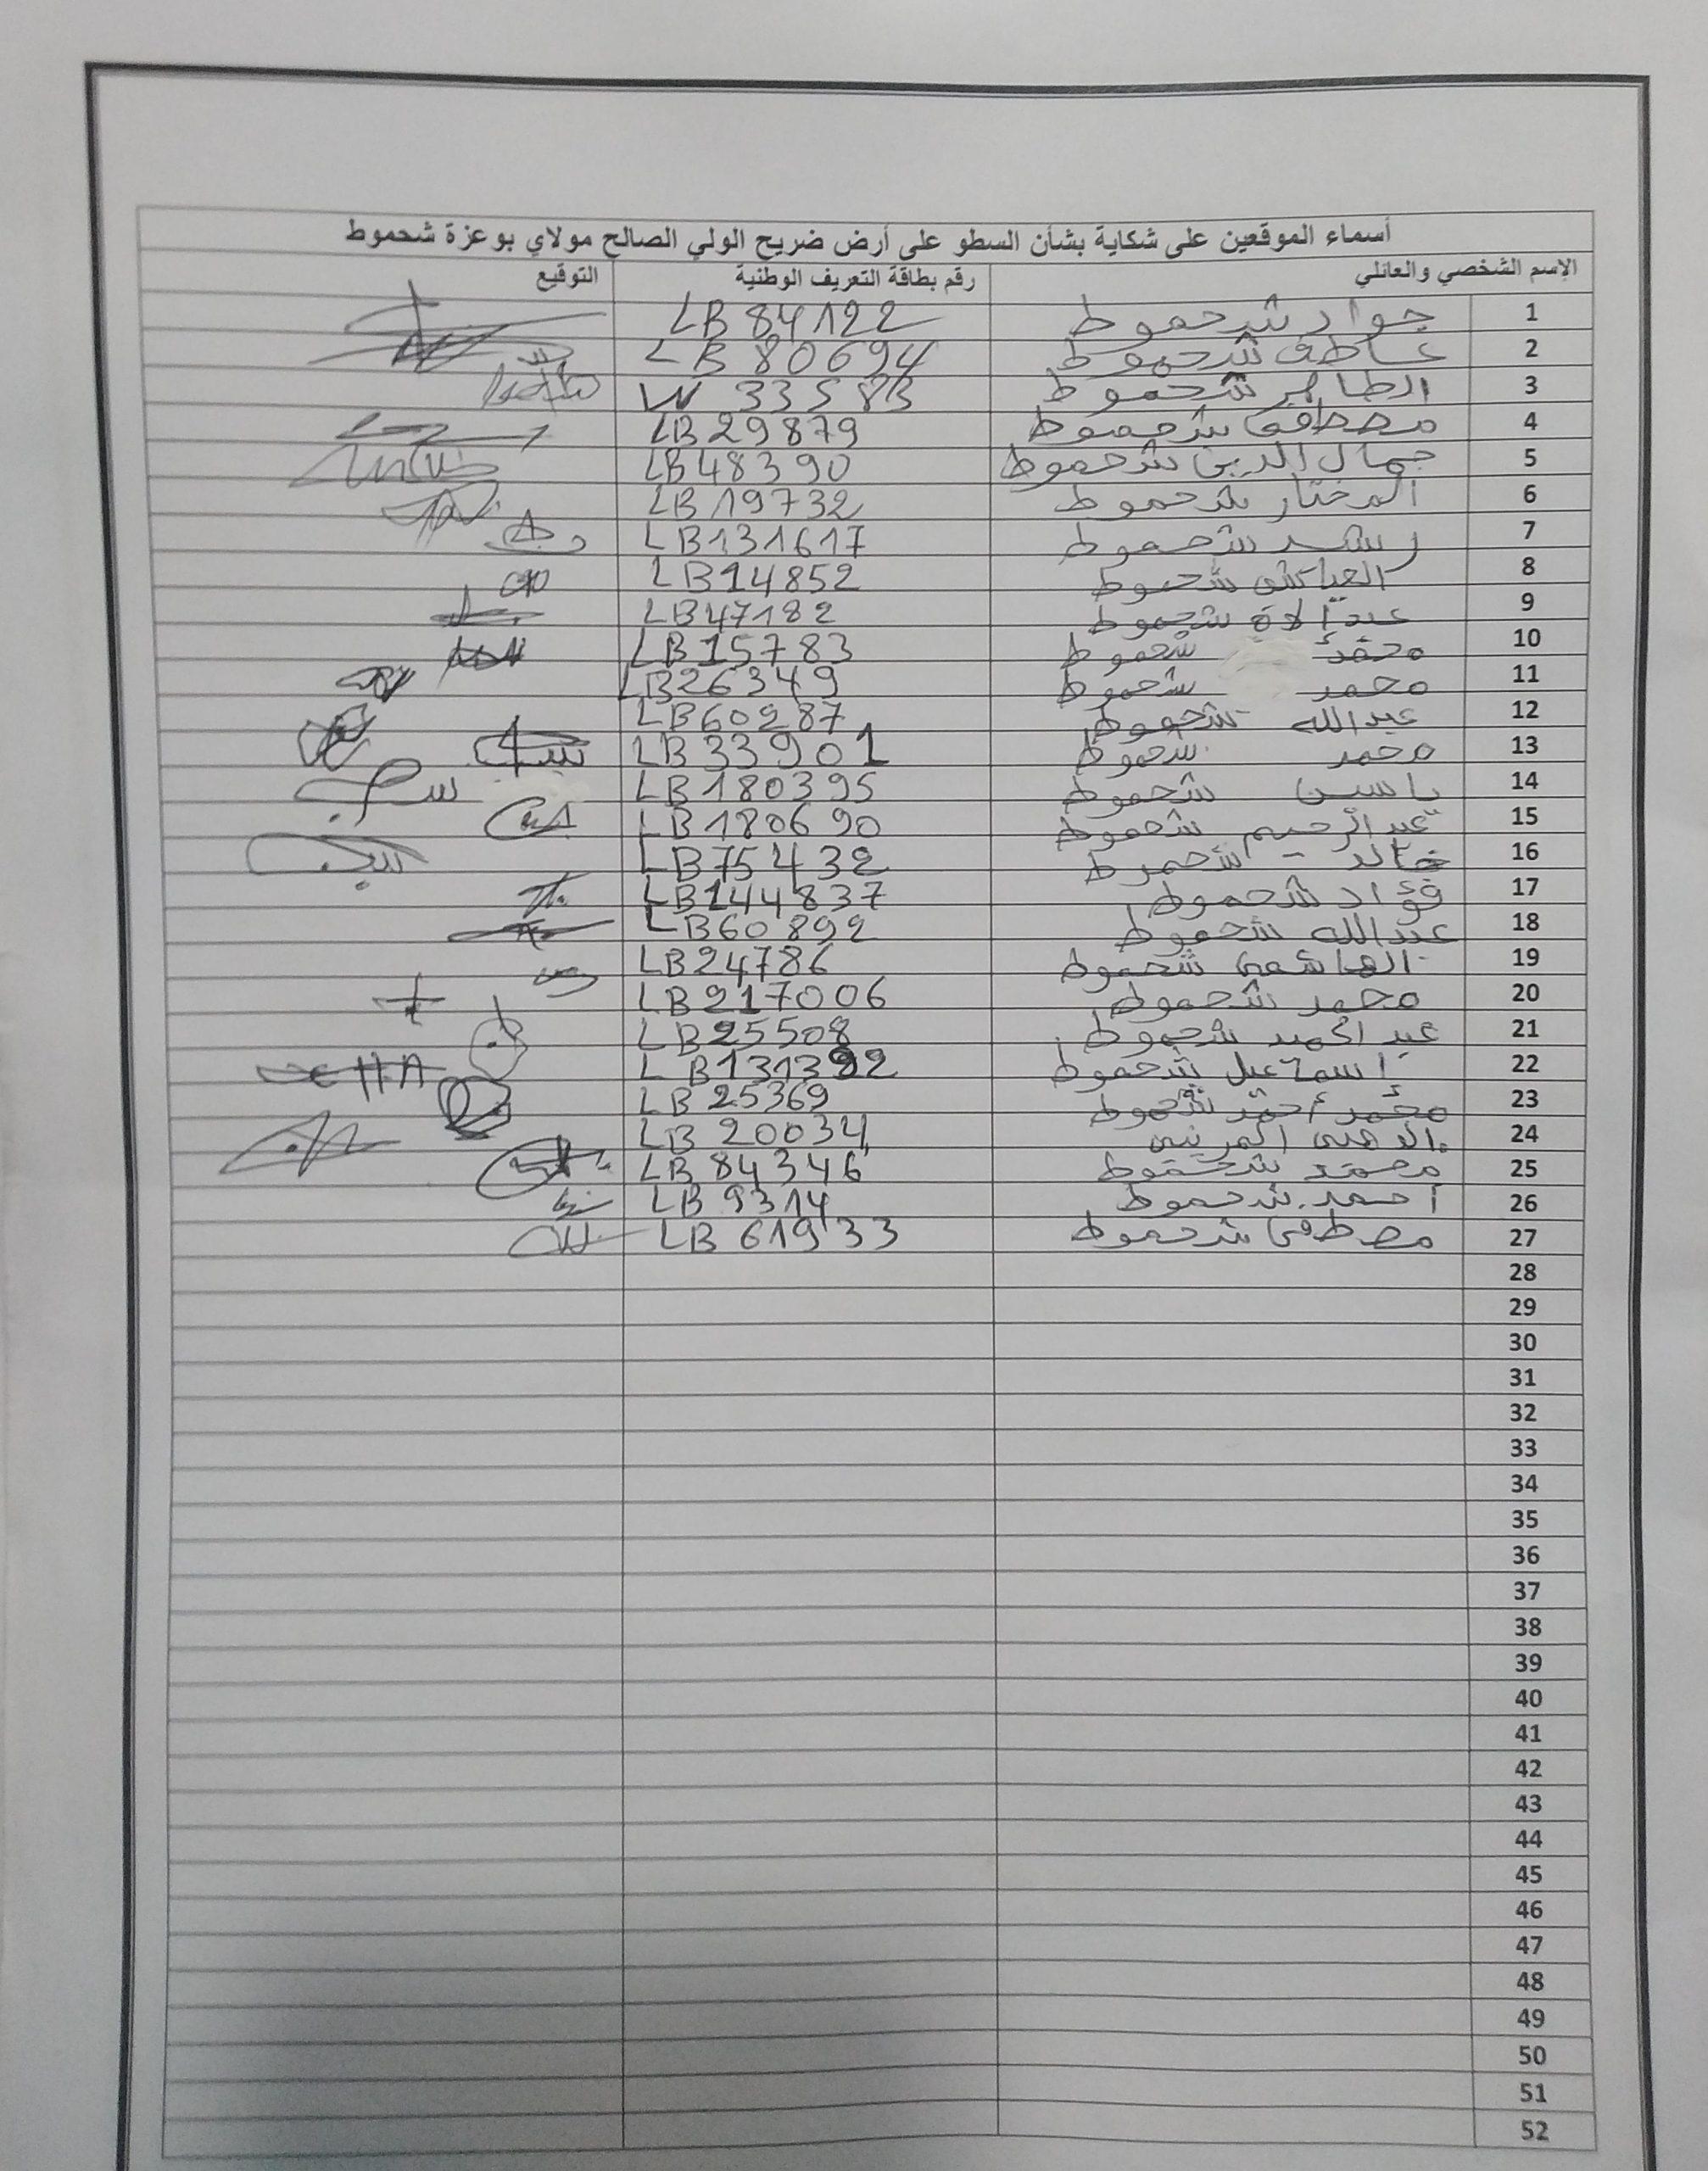 أسماء الموقعين على شكاية بشأن السطو على أرض ضريح الولي الصالح مولاي بوعزة شحموط
الإسم الشخصي والعائلي رقم بطاقة التعريف الوطنية التوقيع
1 جواد شحموط LB 84122
2 عاطف شحموط LB 80694
3 الطاهر شحموط W 33583
4 مصطفى شحموط LB 29879
5 جمال الدين شحموط LB 48390
6 المختار شحموط LB 19732
7 رشيد شحموط LB131617
8 العياشي شحموط LB14852
9 عبد الاه شحموط LB47182
10 محمد شحموط LB15783
11 محمد شحموط LB26349
12 عبدالله شحموط LB60287
13 محمد شحموط LB33901
14 ياسين شحموط LB180395
15 عبد الرحيم شحموط LB180690
16 خالد شحموط LB75432
17 فؤاد شحموط LB144837
18 عبدالله شحموط LB60892
19 الهاشمي شحموط LB24786
20 محمد شحموط LB217006
21 عبد الحميد شحموط LB25508
22 اسماعيل شحموط LB131392
23 محمد أحمد شحموط LB 25369
24 LB 20034
25 محمد شحموط LB 84346
26 أحمد شحموط LB 9314
27 مصطفى شحموط LB 61933
28
29
30
31
32
33
34
35
36
37
38
39
40
41
42
43
44
45
46
47
48
49
50
51
52